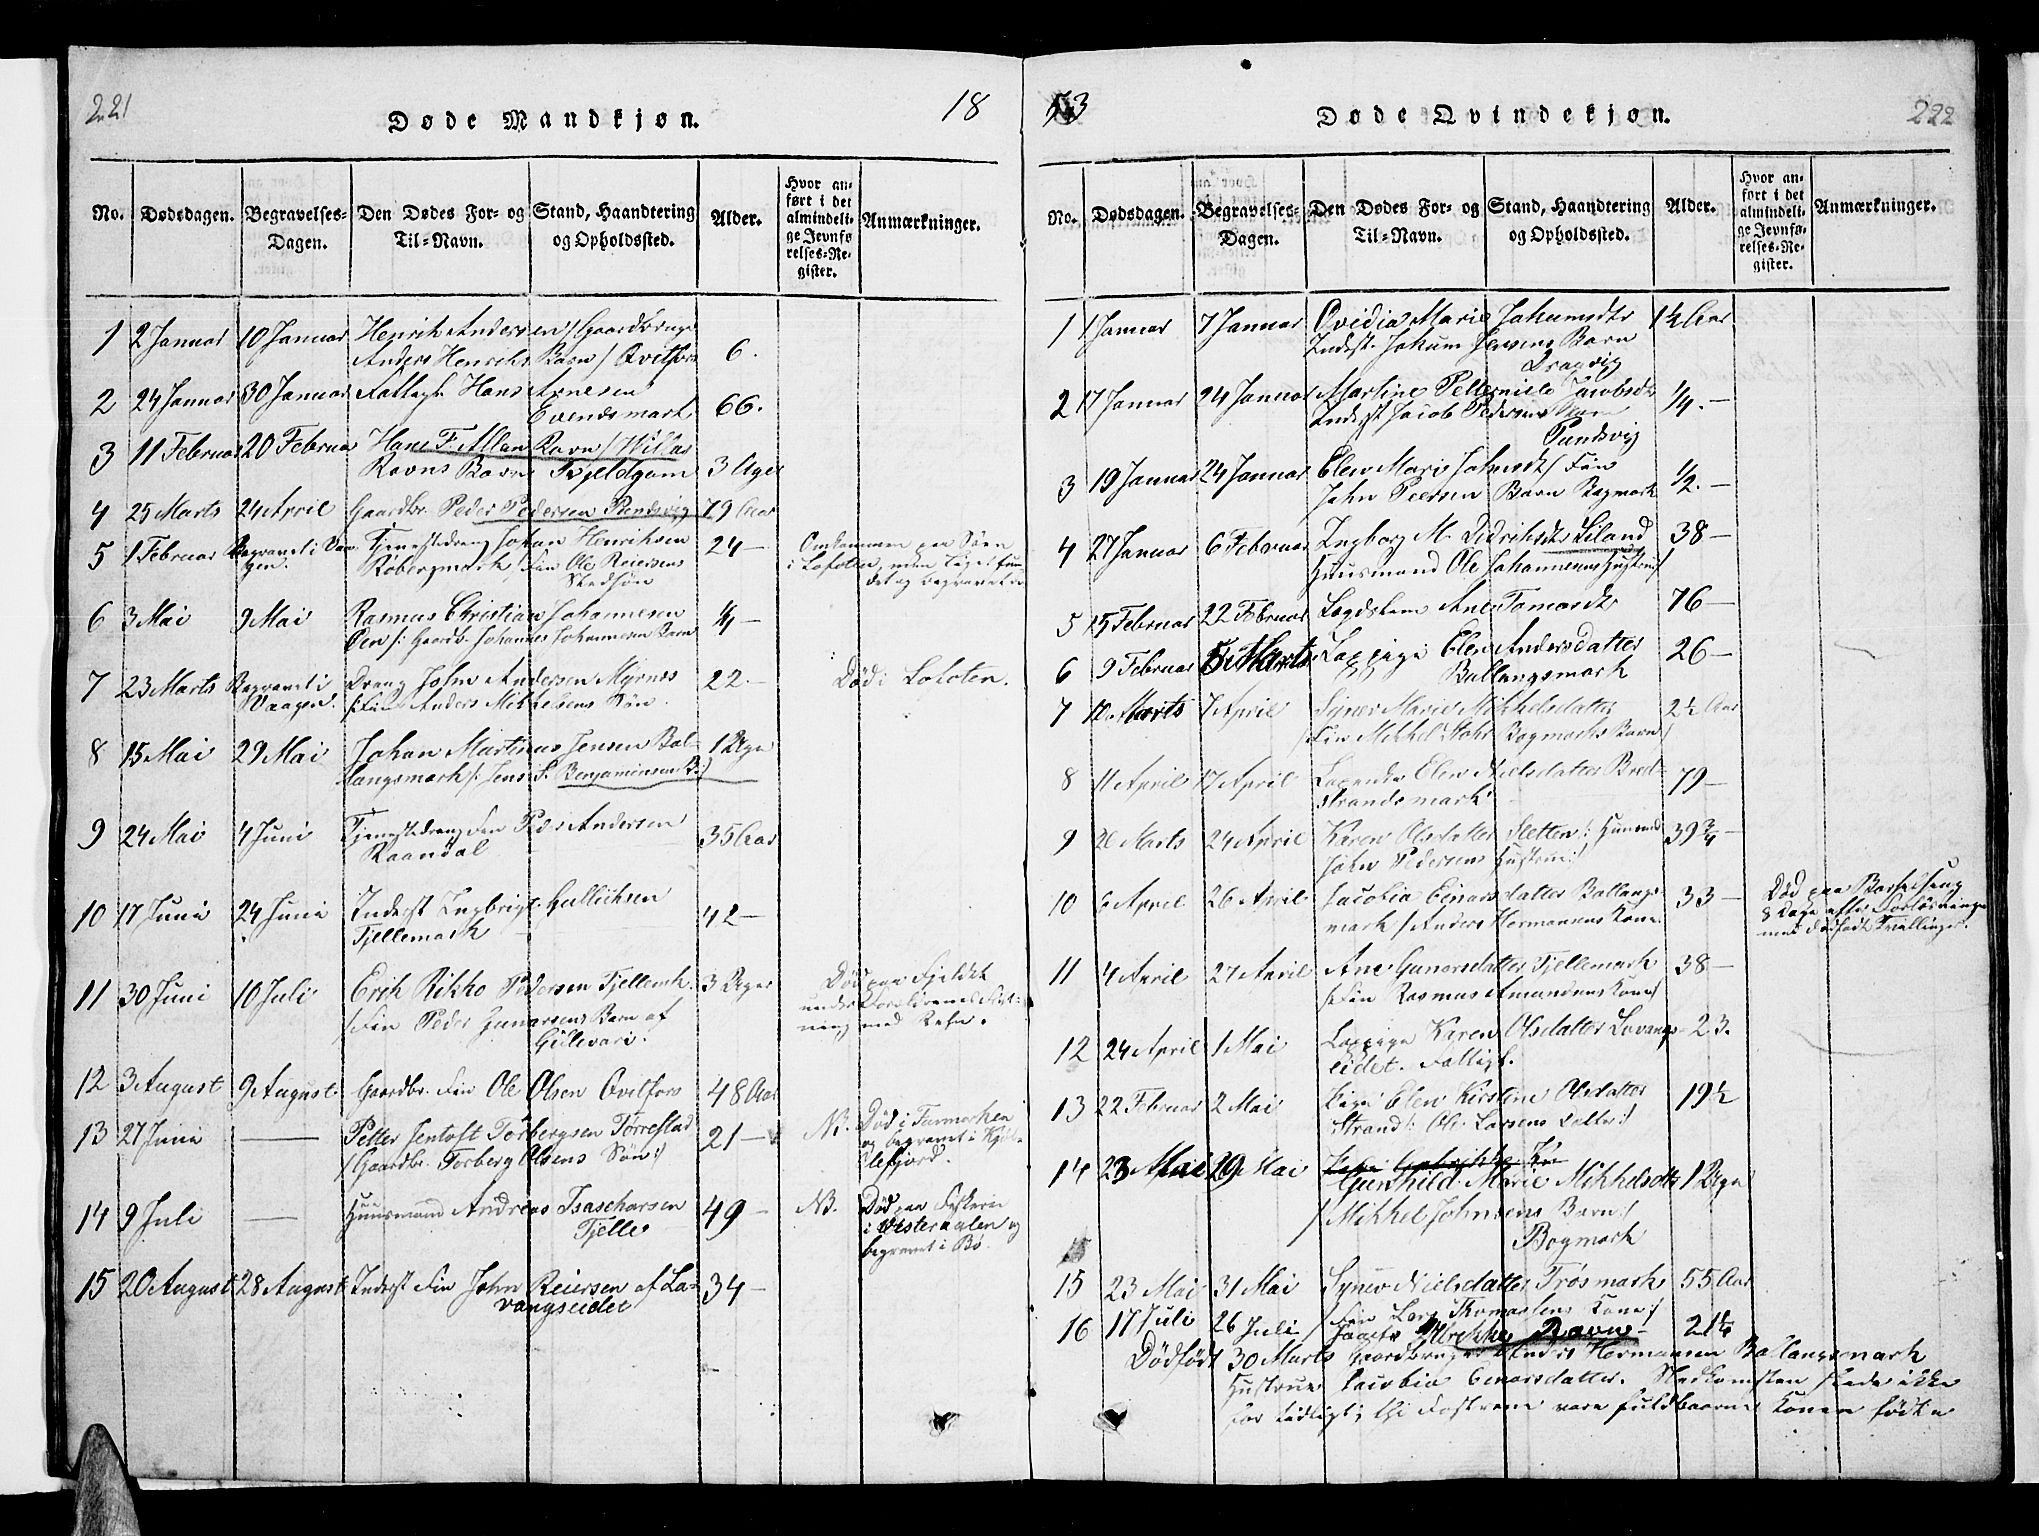 221
Døde Mandkjøn.
18
No.
Dødsdagen.
Begravelses-
Dagen.
Den Dødes For- og
Til-Navn.
Stand, Haandtering
og Opholdssted.
Alder.
Hvor an-
ført i det
almindeli-
ge Jevnfø-
relses-Re-
gister.
Anmærkninger.
1 2 Januar 10 Januar Henrik Andersen /: Gaardbruger
Anders Henrichs Barn / Qvitfors 6.
2 24 Januar 30 Januar Hans Arnesen
Evendsmark 66.
3 11 Februar 20 Februa Hans F. Allan Ravn / Willas
Ravns Barn Fjeldgam 3 Uger
4 25 Marts 24 April Gaardbr. Peder Pedersen Pundsvig 79 Aar
5 1 Februar Begravet i Vaa-
gen. Tjenestedreng Johan Henriksen
Robergmark / Fin Ole Reiersens
Stedsøn 24 — Omkommen paa Søen
i Lofoten, men Liget fun-
det og begravet
6 3 Mai 9 Mai Rasmus Christian Johannesen
Øen /: Gaardb. Johannes Johannesen Barn 1/4 —
7 23 Marts Begravet i
Vaagen. Dreng John Andersen Myrnes
/: Fin Anders Mikkelsens Søn. 22 — Død i Lofoten.
8 15 Mai 29 Mai Johan Martinus Jensen Bal-
langsmark /: Jens S. Benjaminsen B:/ 1 Uge
9 24 Mai 4 Juni Tjenestedreng Fin Peder Andersen
Raandal 35 Aar
10 17 Juni 24 Juni Inderst Ingbrigt Gulliksen
Tjellemark 42 —
11 30 Juni 10 Juli Erik Rikho Pedersen Tjellemk.
/: Fin Peder Gunarsens Barn af
Gillevari. 3 Uger Død paa Fjeldet
under Forældrenes Flyt-
ning med Rehn.
12 3 August 9 August Gaardbr. Fin Ole Olsen Qvitfors 48 Aar
13 27 Juni — Petter Jentoft Torbergsen Tørrestad
/ Gaardbr. Torberg Olsens Søn:/ 21 — NB. Død i Finmarken
og begravet i Kjøl-
lefjord.
14 9 Juli — Huusmand Andreas Isascharsen
Fjelle 49 — NB. Død paa Fiskeri
i Vesteraalen og
begravet i Bø.
15 20 August 28 August Inderst Fin John Reiersen af La-
vangseidet 34 —
53
Døde Qvindekjøn.
222
No.
Dødsdagen.
Begravelses-
Dagen.
Den Dødes For- og
Til-Navn.
Stand, Haandtering
og Opholdssted.
Alder.
Hvor an-
ført i det
almindeli-
ge Jevnfø-
relses-Re-
gister.
Anmærkninger.
1 1 Januar 7 Januar Ovidia Marie Jakumsdtr 1½ Aar
Inderst Jakum Jensens Barn
Dragvig
2 17 Januar 24 Januar Martine Petternille Jacobsdtr 1/4. —
Inderst Jacob Pedersens Barn
Pundsvig
3 19 Januar 24 Januar Elen Marie Johnsdt / Fin
John Peersen Barn Bogmark 1/2. —
4 27 Januar 6 Februar Ingborg M. Didriksdtr Liland 38 —
Huusmand Ole Johannesens Hustru:/
5 15 Februar 22 Februar Lægdslem Ane Tomasdtr 76 —
6 9 Februar 5 Marts Lappige Elen Andersdatter 26 —
Ballangsmark
7 10 Marts 7 April Synev Marie Mikkelsdatter 2½ Aar
/ Fin Mikkel Bogmarks Barn /
8 11 April 17 April Elen Nielsdatter Bred-
strandsmark 79 —
9 20 Marts 24 April Karen Olsdatter Sletten /: Huusmd
John Pedersens Hustru:/ 39 3/4 —
10 6 April 26 April Jacobia Einarsdatter Ballangs-
mark / Anders Hermansens Kone 33 — Død paa Barselseng
8 Dage efter Forløsningen
med dødfødte Tvillinger.
11 4 April 27 April Ane Gunersdatter Tjellemark 38 —
/: Fin Rasmus Amundsens Kone:/
12 24 April 1 Mai Lappige Karen Olsdatter Lavangs- 23.
eidet. Fattigl.
13 22 Februar 2 Mai Pige Elen Kirstine Olsdatter
Strand /: Ole Larsens Datter:/ 19½
14 23 Mai 29 Mai
Gunhild Marie Mikkelsdtr 1 Uge
/ Mikkel Johnsens Barn:/
Bogmark
15
15 23 Mai 31 Mai Synev Nielsdatter Trøsmark 55 Aar
/ Fin Lars Thomassens Kone:/
16 17 Juli 26 Juli Ulrikke Ravn 21¼
Dødfødt 30 Marts Gaardbruger Anders Hermansen Ballangsmark
Hustrue Jacobia Einarsdatter. Nedkomsten skede ikke
for tidligt; thi Fostrene vare fuldbaarne Konen fødte